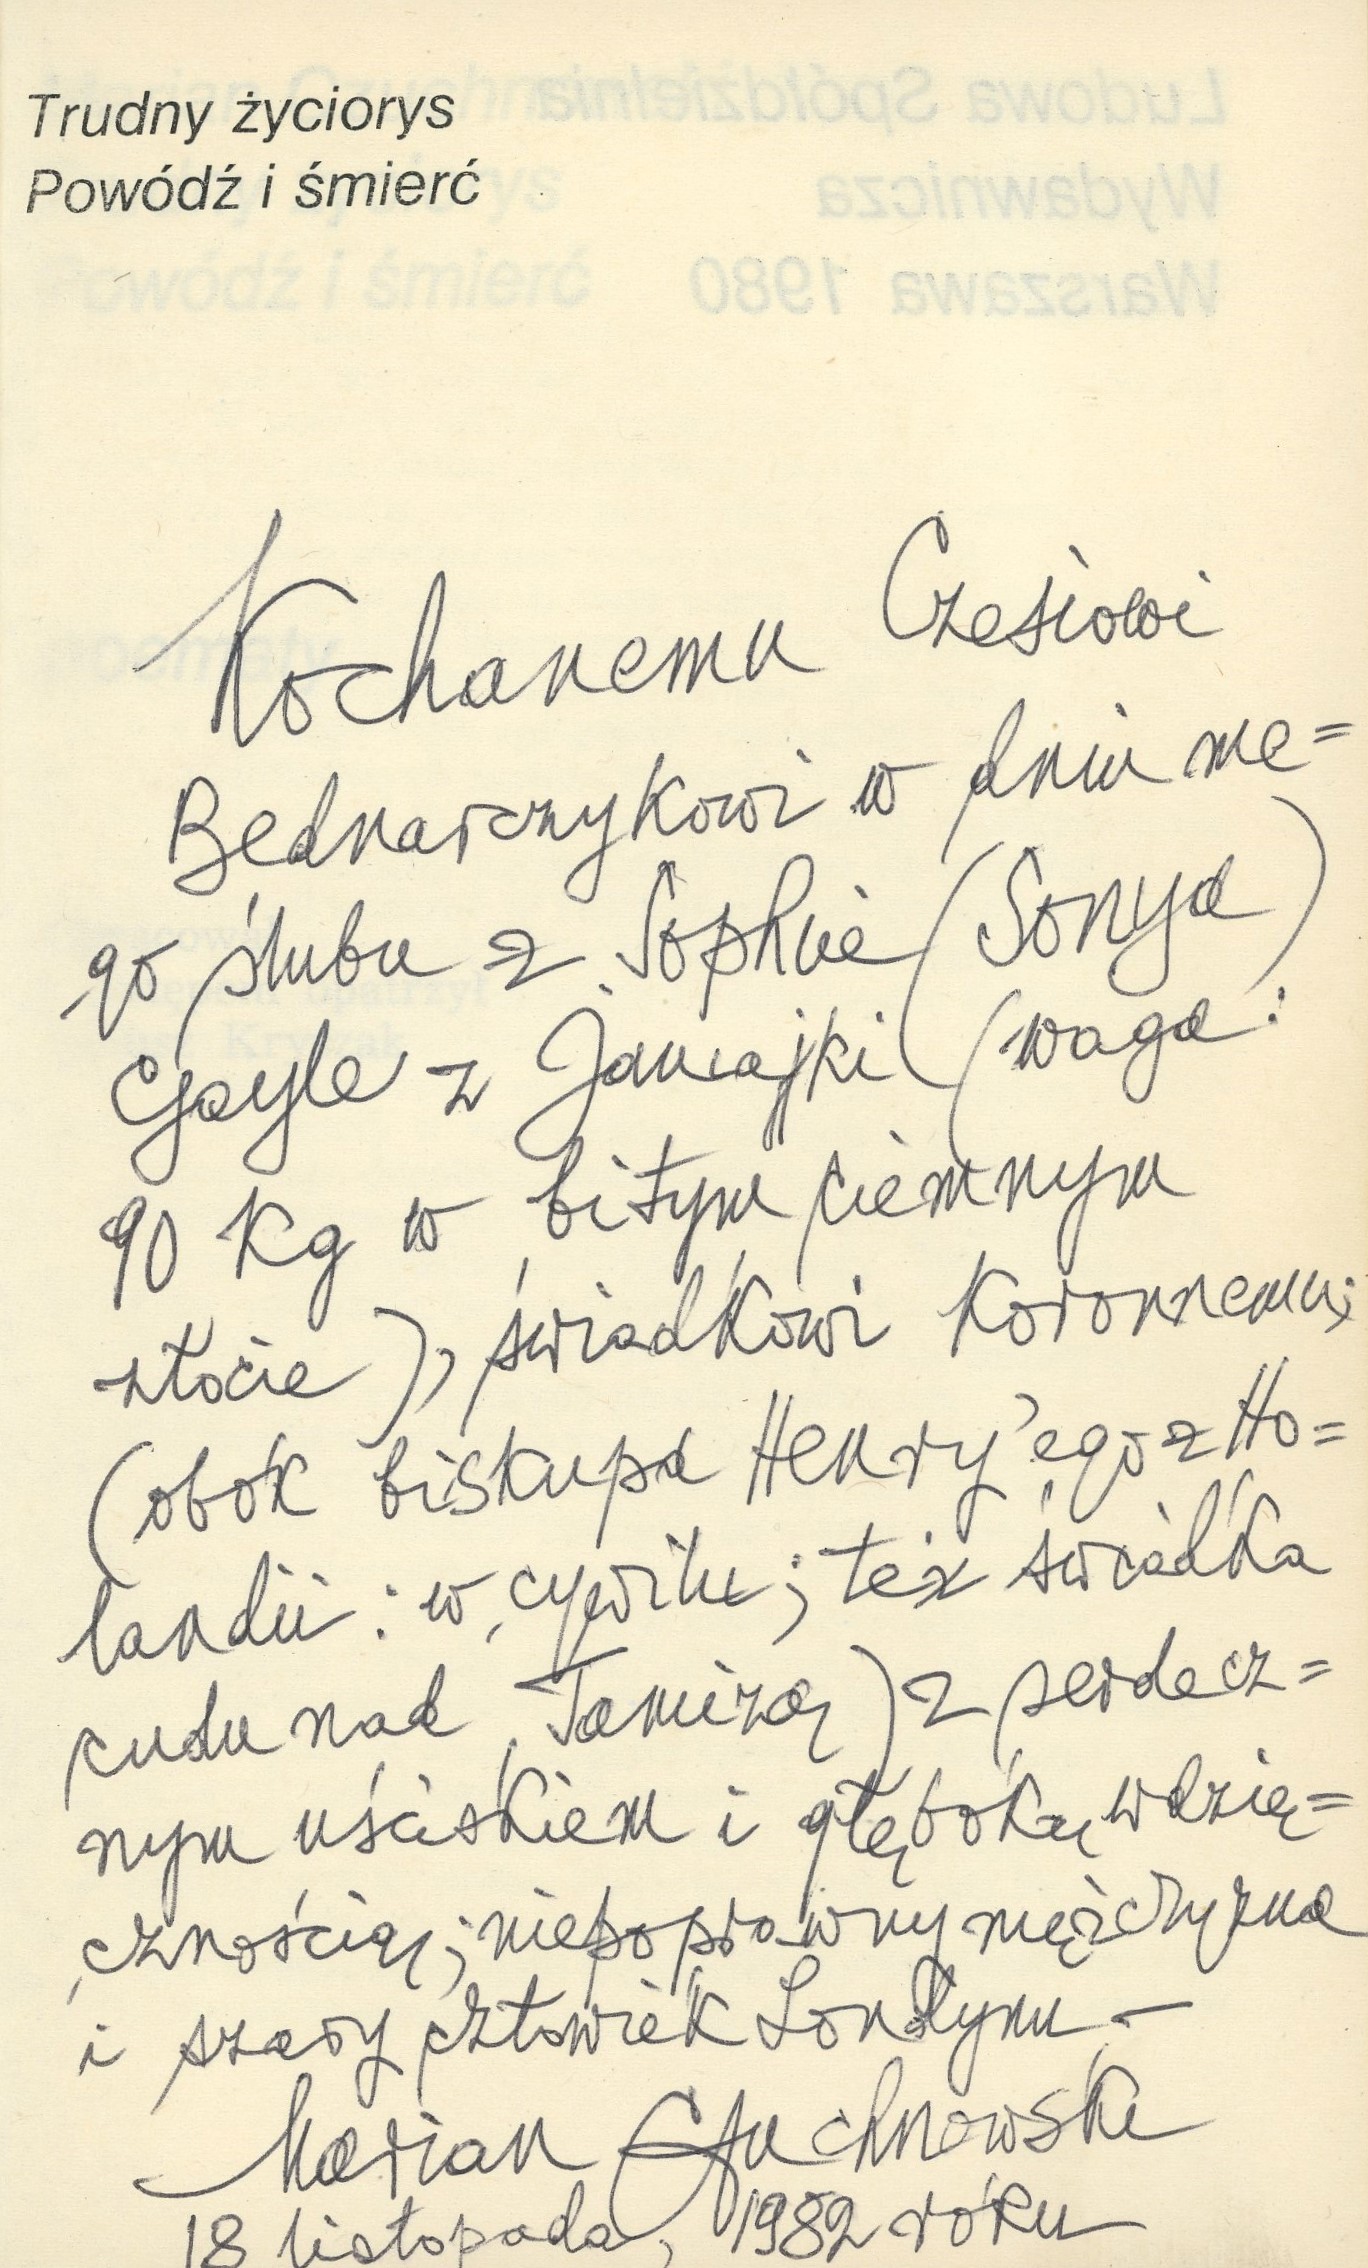 Trudny życiorys
Powódź i śmierć
Ludowa Spółdzielnia
Wydawnicza
Warszawa 1980
Powódź i śmierć
poematy
Kochanemu Czesiowi
Bednarczykowi w dniu me=
go ślubu z Sophie (Sonya)
Gayle z Jamajki (waga:
90 kg w bitym ciemnym
złocie), świadkowi koronnemu;
(obok biskupa Henry'ego z Ho=
landii: w cywilu; też świadka
cudu nad Tamizą) z serdecz=
nym uściskiem i głęboką wdzię=
cznością; niepoprawny mężczyzna
i szary człowiek Londynu –
Marian Czuchnowski
18 listopada, 1982 roku